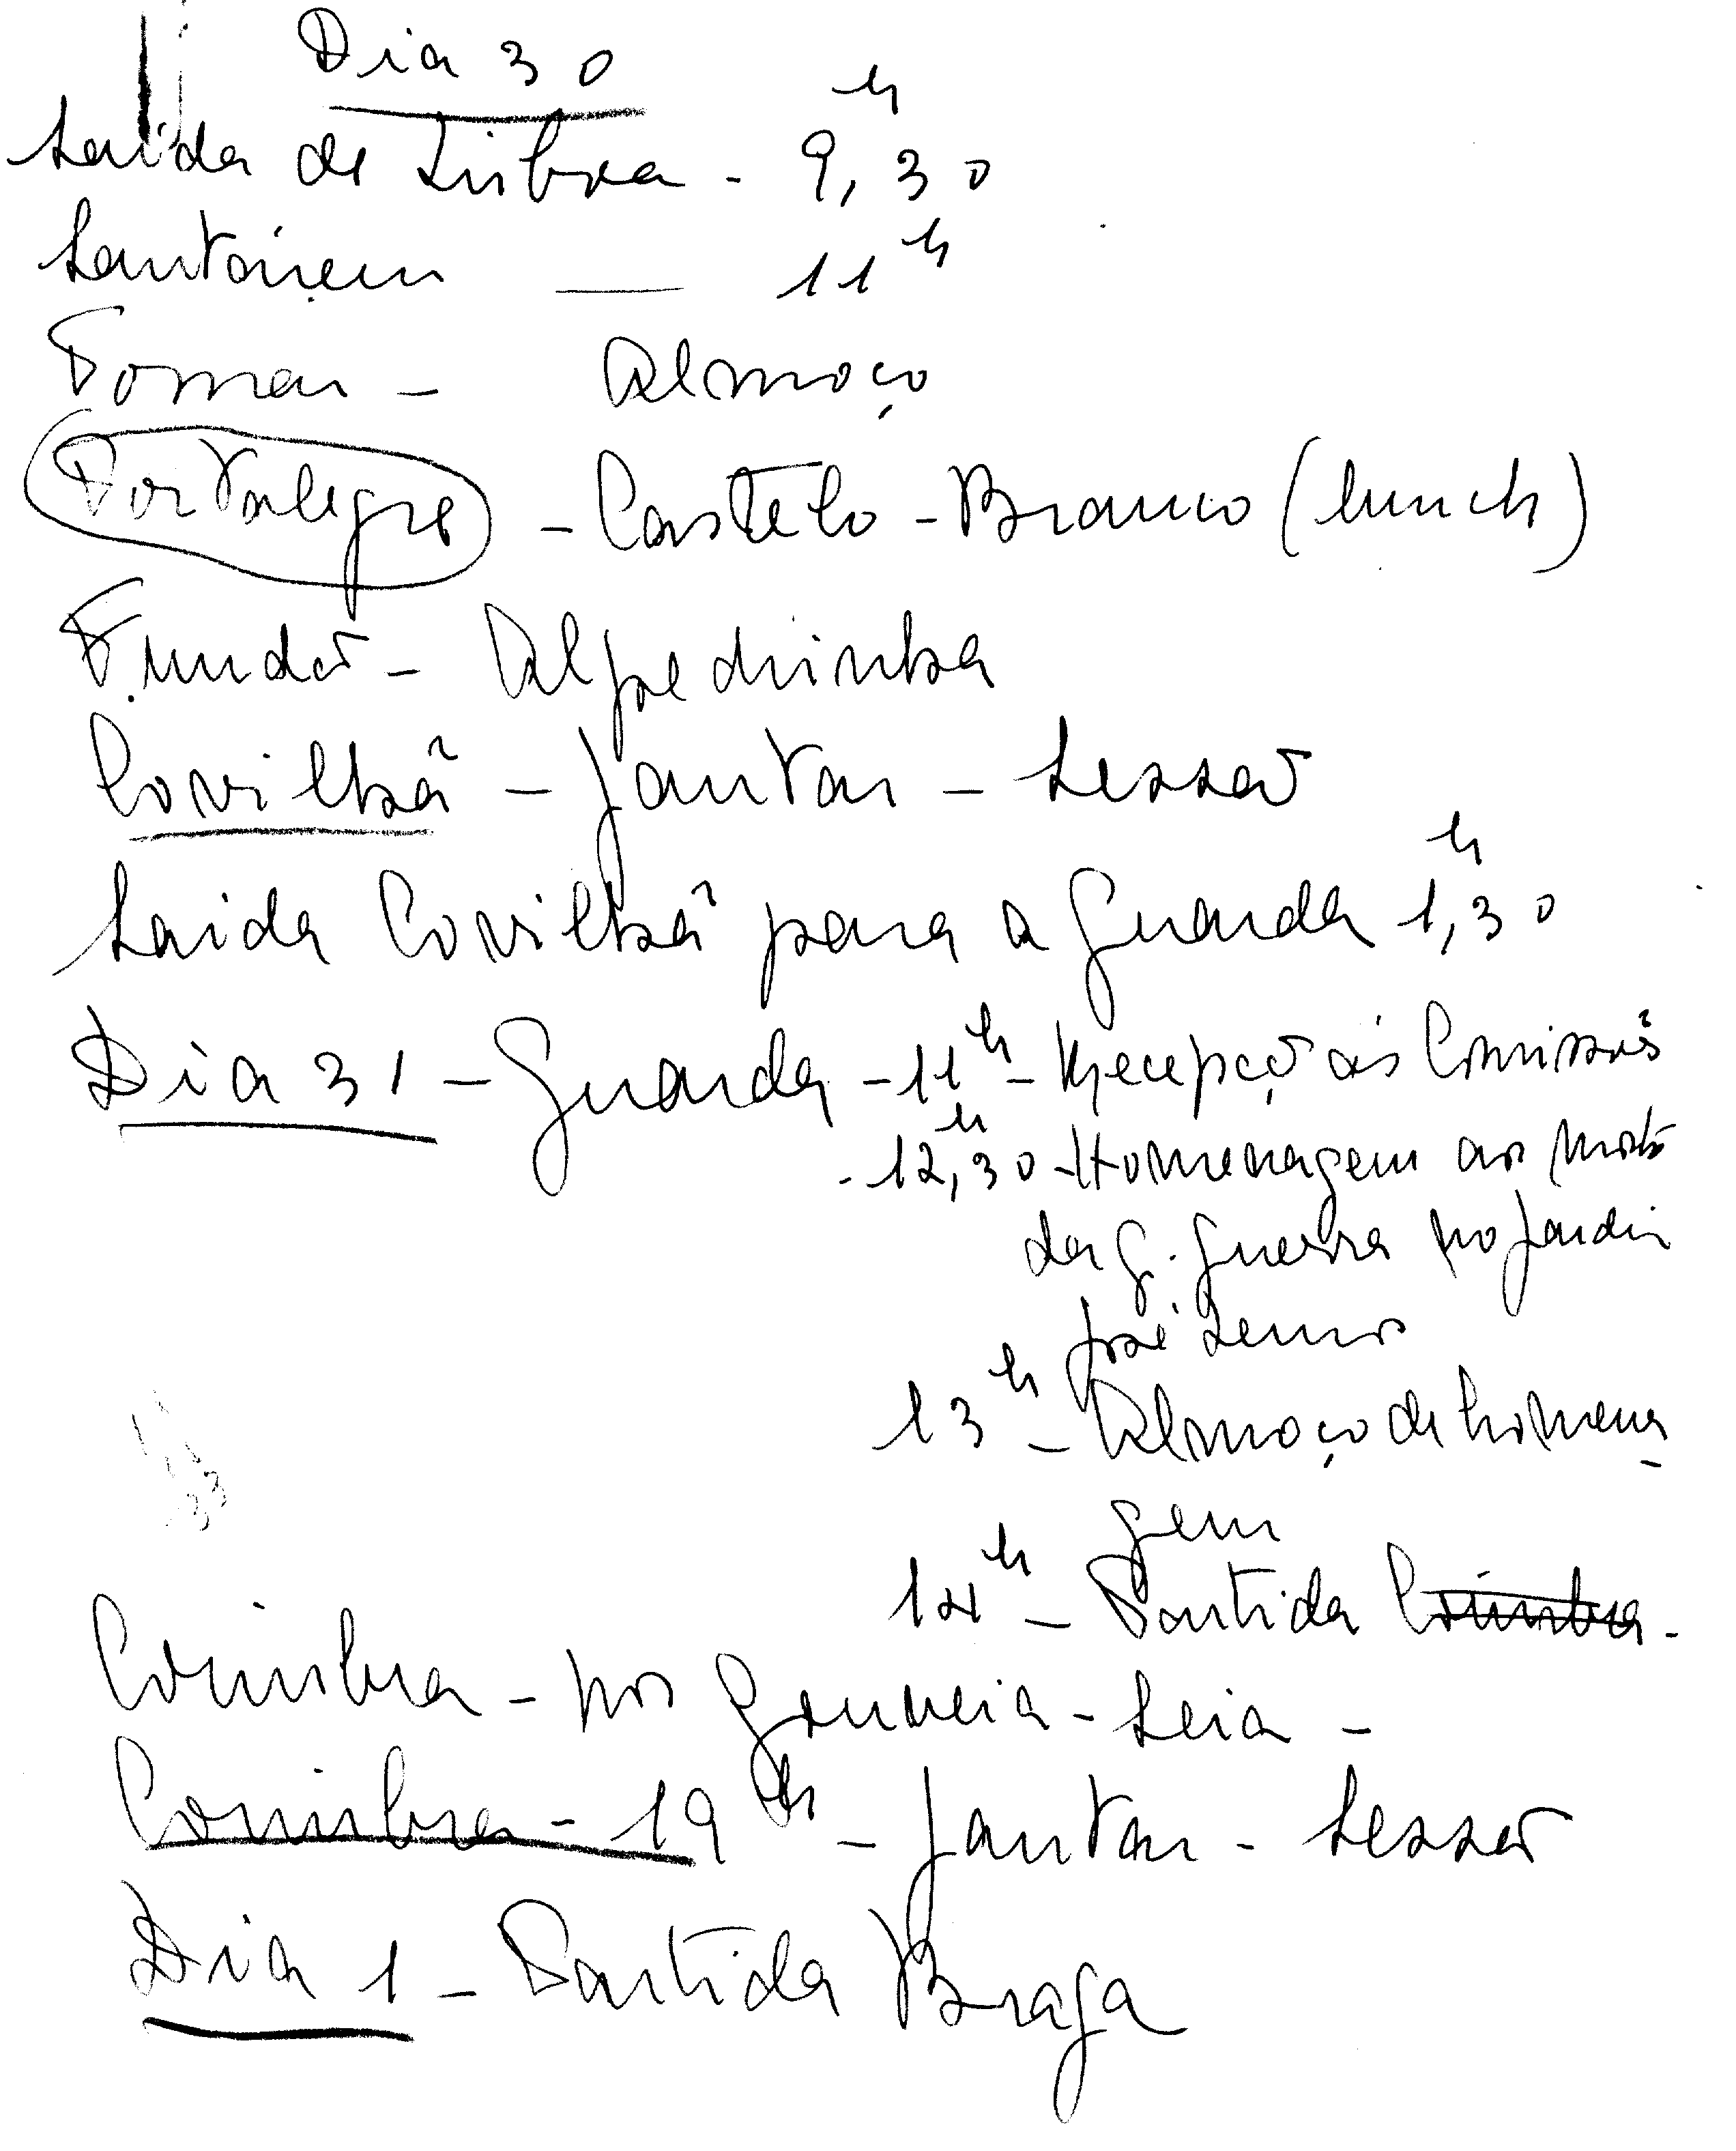 Dia 30
Saída de Lisboa - 9,30 h
Santarem — 11 h
Tomar - Almoço
Portalegre - Castelo-Branco (lunch)
Fundão - Alpedrinha
Covilhã - Jantar - Sessão
Saida Covilhã para a Guarda 1,30 h
Dia 31 - Guarda - 11 h - Recepção ás Comissões
- 12,30 h - Homenagem aos mortos
da G. Guerra no Jardim
José Lemos
13 h - Almoço de homena-
gem
14 h - Partida Coimbra -
Coimbra - por Gouveia - Seia -
Coimbra - 19 h - Jantar - Sessão
Dia 1 - Partida Braga